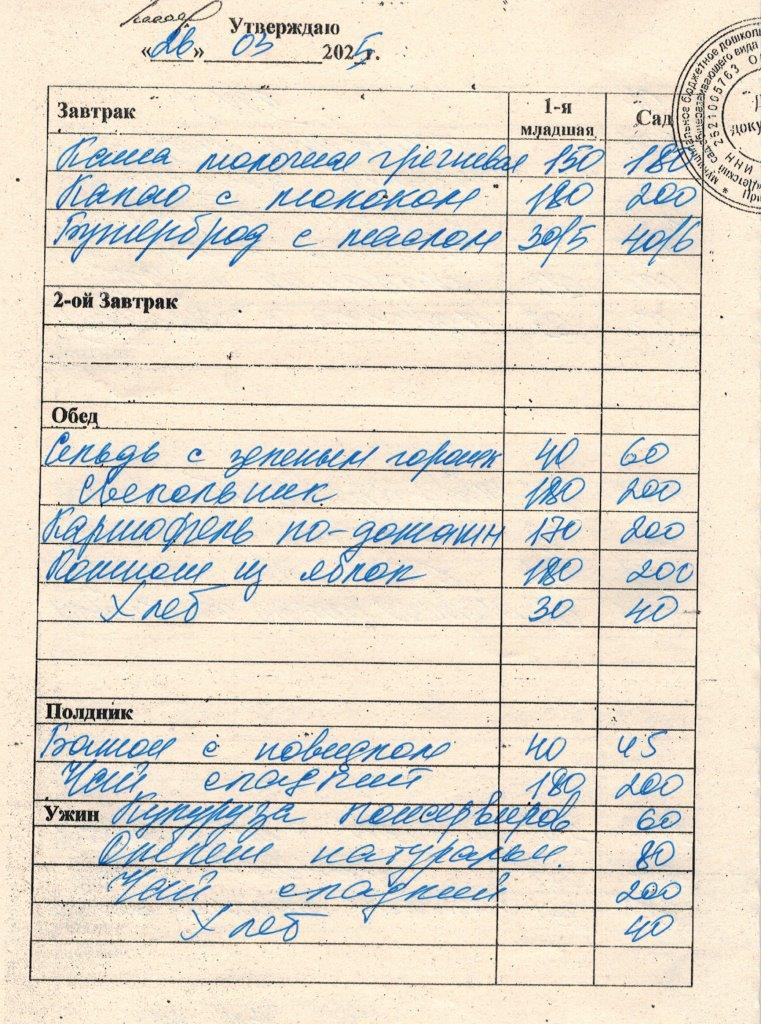 Утверждаю
«26» 03 2025 г.
Завтрак 1-я младшая Сад
Каша молочная гречневая 150 180
Какао с молоком 180 200
Бутерброд с маслом 30/5 40/6
2-ой Завтрак
Обед
Сельдь с зеленым горошк 40 60
Свекольник 180 200
Картофель по-домашн 170 200
Компот из яблок 180 200
Хлеб 30 40
Полдник
Батон с повидлом 40 45
Чай сладкий 180 200
Ужин Кукуруза консервиров 60
Омлет натуральн. 80
Чай сладкий 200
Хлеб 40
муниципальное бюджетное дошколь
общеразвивающего вида
ИНН 2521005763 О